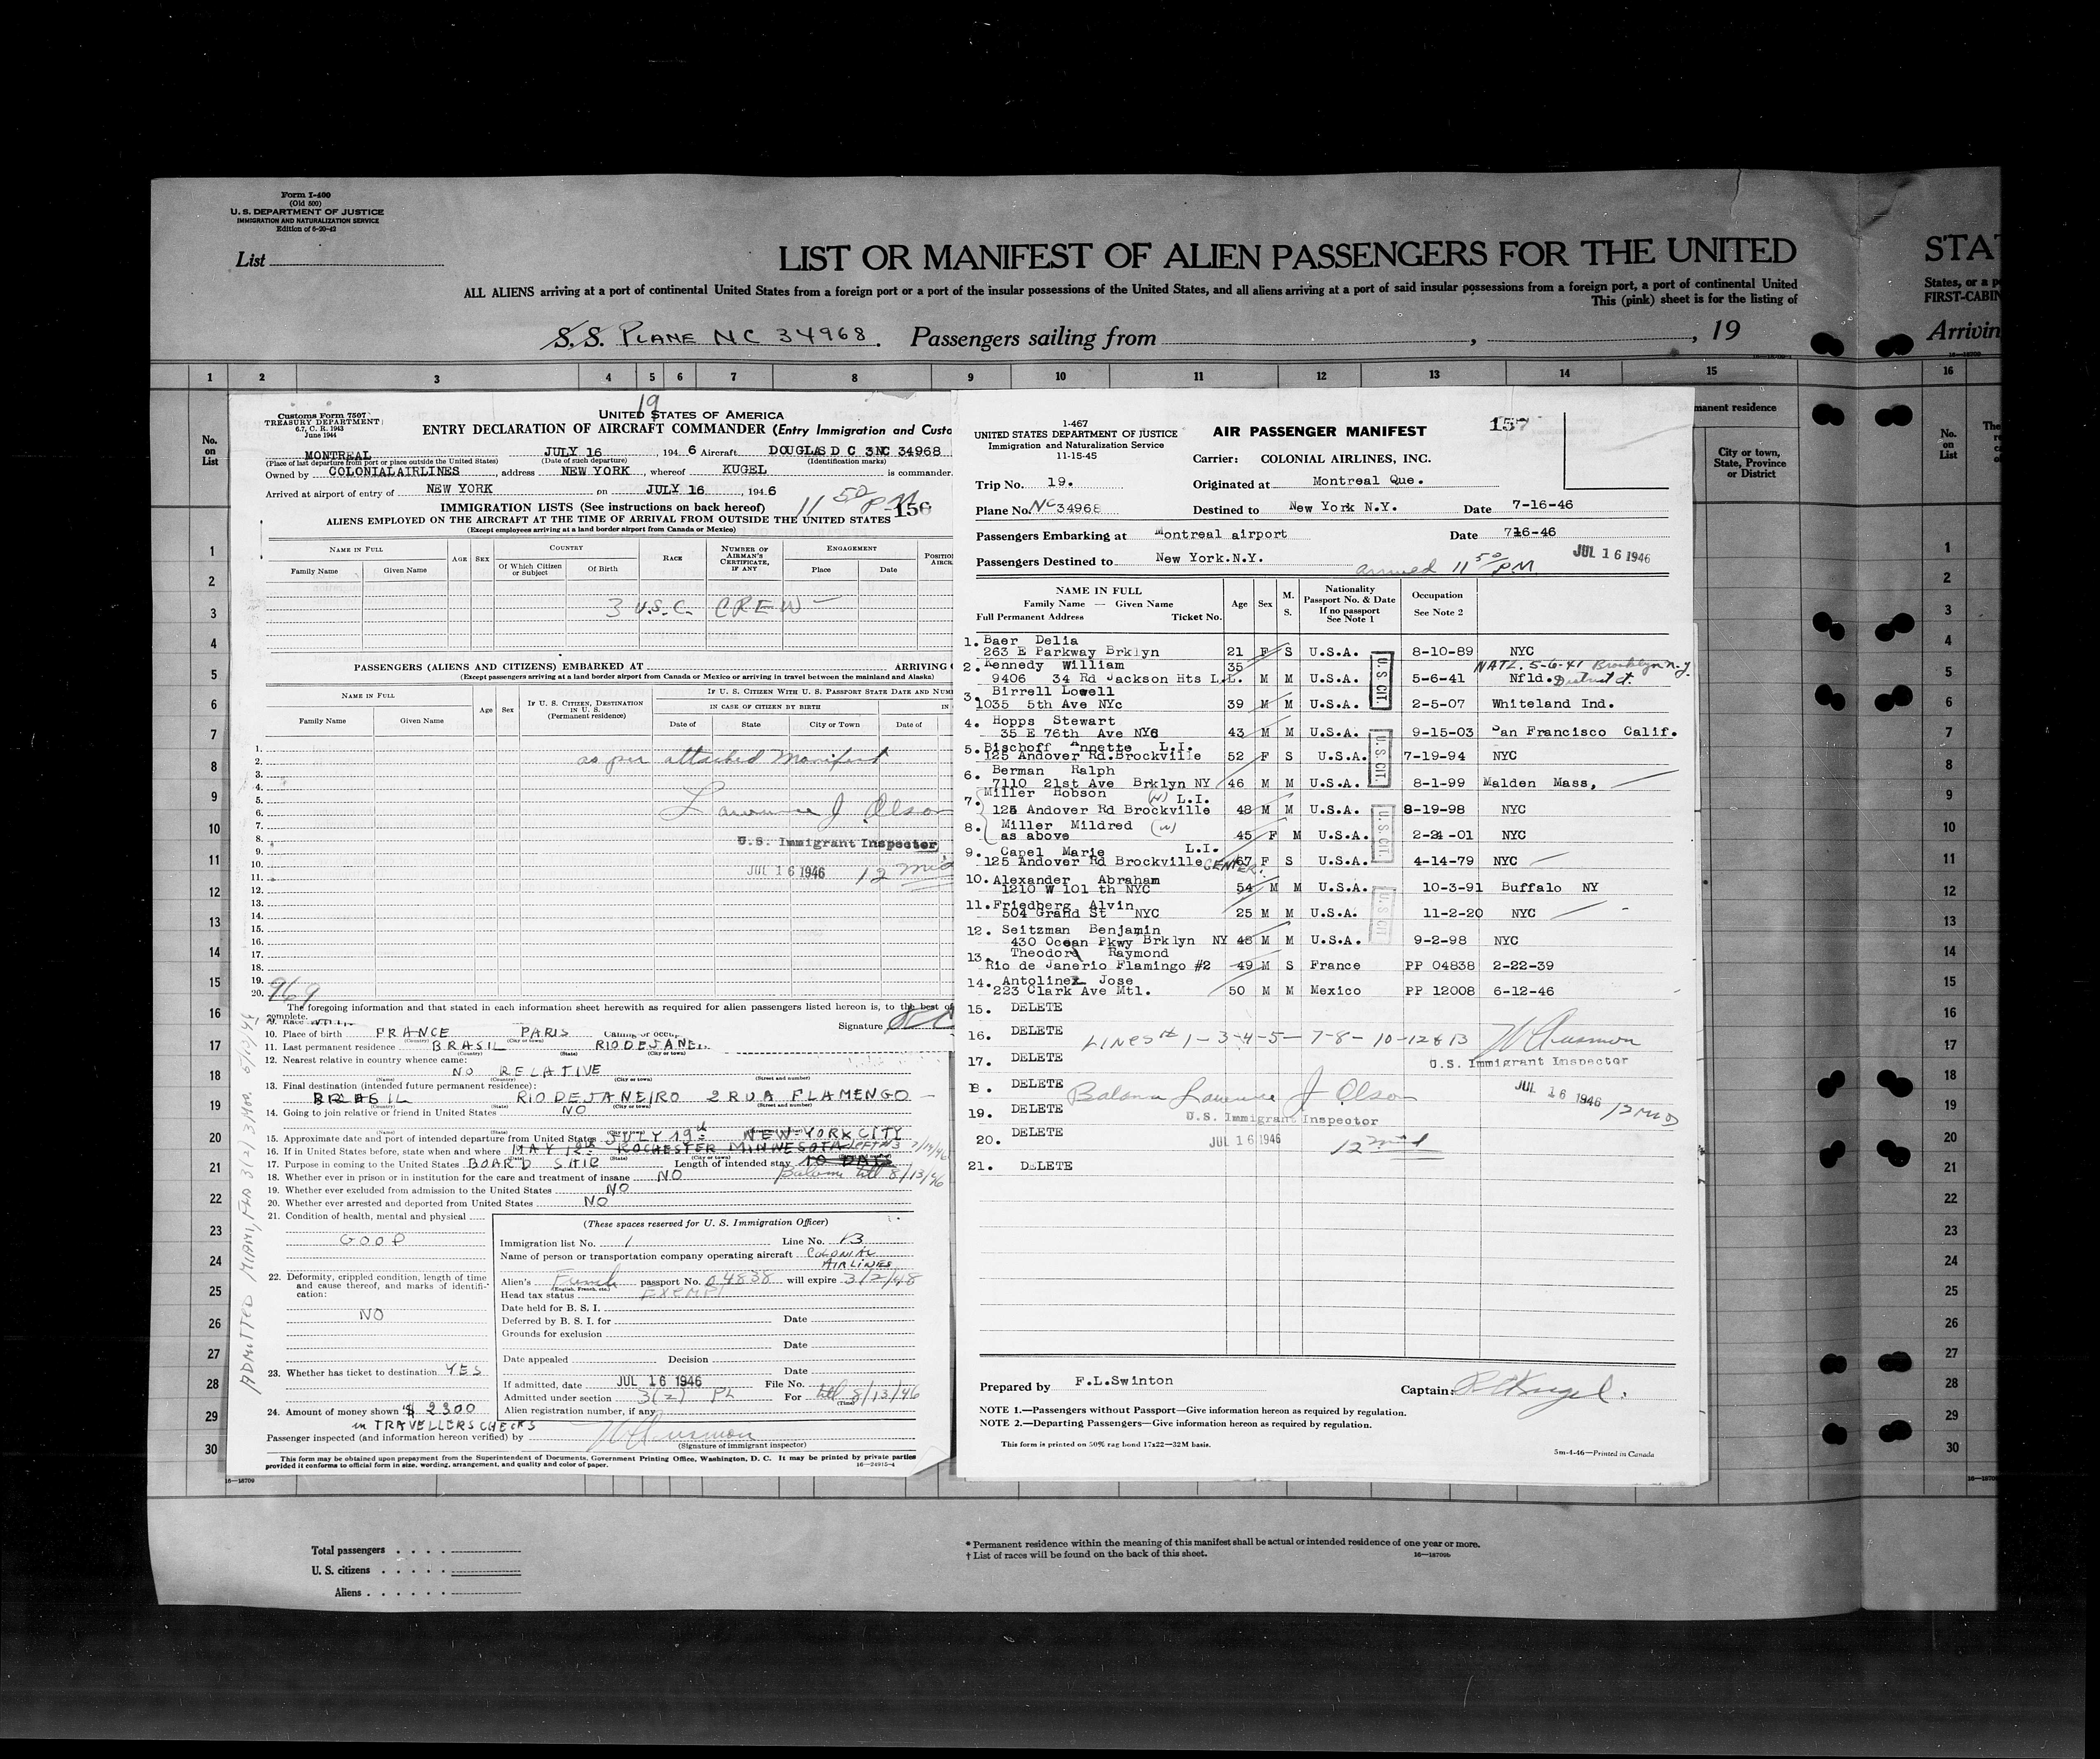 Form I-400
(Old 500)
U. S. DEPARTMENT OF JUSTICE
IMMIGRATION AND NATURALIZATION SERVICE
Edition of 6-20-42
List
LIST OR MANIFEST OF ALIEN PASSENGERS FOR THE UNITED
ALL ALIENS arriving at a port of continental United States from a foreign port or a port of the insular possessions of the United States, and all aliens arriving at a port of said insular possessions from a foreign port, a port of continental United
This (pink) sheet is for the listing of
S.S. PLANE NC 34968. Passengers sailing from , , 19
STAT
States, or a p
FIRST-CABIN
Arrivin
1 2 3 4 5 6 7 8 9 10 11 12 13 14 15 16
No. on List
manent residence
City or town, State, Province or District
No. on List
1
2
3
4
5
6
7
8
9
10
11
12
13
14
15
16
17
18
19
20
21
22
23
24
25
26
27
28
29
30
Customs Form 7507
TREASURY DEPARTMENT
6.7, C. R. 1943
June 1944
19
UNITED STATES OF AMERICA
ENTRY DECLARATION OF AIRCRAFT COMMANDER (Entry Immigration and Custo
MONTREAL JULY 16 , 194 6 Aircraft DOUGLAS D C 3 NC 34968
(Place of last departure from port or place outside the United States) (Date of such departure) (Identification marks)
Owned by COLONIAL AIRLINES , address NEW YORK , whereof KUGEL is commander.
Arrived at airport of entry of NEW YORK on JULY 16 , 194 6
11 50 PM
IMMIGRATION LISTS (See instructions on back hereof) 156
ALIENS EMPLOYED ON THE AIRCRAFT AT THE TIME OF ARRIVAL FROM OUTSIDE THE UNITED STATES
(Except employees arriving at a land border airport from Canada or Mexico)
NAME IN FULL AGE SEX COUNTRY RACE NUMBER OF AIRMAN'S CERTIFICATE, IF ANY ENGAGEMENT
Family Name Given Name Of Which Citizen or Subject Of Birth Place Date
3 U.S.C. CREW
PASSENGERS (ALIENS AND CITIZENS) EMBARKED AT ARRIVING
(Except passengers arriving at a land border airport from Canada or Mexico or arriving in travel between the mainland and Alaska)
NAME IN FULL Age Sex IF U. S. CITIZEN, DESTINATION IN U. S. (Permanent residence) IF U. S. CITIZEN WITH U. S. PASSPORT STATE DATE AND NUM
IN CASE OF CITIZEN BY BIRTH
Family Name Given Name Date of State City or Town Date of
1.
2. as per attached Manifest
3.
4.
5. Lawrence J Olson
6.
7.
8. U.S. Immigrant Inspector
9.
10.
11. JUL 16 1946 12 mid
12.
13.
14.
15.
16.
17.
18.
19.
20.
969
The foregoing information and that stated in each information sheet herewith as required for alien passengers listed hereon is, to the best of
complete.
Signature
10. Place of birth FRANCE PARIS
11. Last permanent residence BRASIL RIO DE JANEI
12. Nearest relative in country whence came:
NO RELATIVE
13. Final destination (intended future permanent residence):
BRASIL RIO DE JANEIRO 2 RUA FLAMENGO
14. Going to join relative or friend in United States NO
15. Approximate date and port of intended departure from United States JULY 19th NEW-YORK CITY
16. If in United States before, state when and where MAY 12th ROCHESTER MINNESOTA
17. Purpose in coming to the United States BOARD SHIP Length of intended stay 10 DAYS
18. Whether ever in prison or in institution for the care and treatment of insane NO
19. Whether ever excluded from admission to the United States NO
20. Whether ever arrested and deported from United States NO
21. Condition of health, mental and physical
GOOD
22. Deformity, crippled condition, length of time and cause thereof, and marks of identification:
NO
23. Whether has ticket to destination YES
24. Amount of money shown $ 2300
in TRAVELLERS CHECKS
ADMITTED MIAMI, FLA 3(2) 3 MOS.
(These spaces reserved for U. S. Immigration Officer)
Immigration list No. 1 Line No. 13
Name of person or transportation company operating aircraft COLONIAL AIRLINES
Alien's French passport No. 04838 will expire 3/2/48
(English, French, etc.)
Head tax status EXEMPT
Date held for B. S. I.
Deferred by B. S. I. for Date
Grounds for exclusion
Date
Date appealed Decision
Date
If admitted, date JUL 16 1946 File No.
Admitted under section 3(2) PL For till 8/13/46
(Time)
Alien registration number, if any
Passenger inspected (and information hereon verified) by
(Signature of immigrant inspector)
This form may be obtained upon prepayment from the Superintendent of Documents, Government Printing Office, Washington, D. C. It may be printed by private parties
provided it conforms to official form in size, wording, arrangement, and quality and color of paper. 16—24915-4
16—18709
1-467
UNITED STATES DEPARTMENT OF JUSTICE
Immigration and Naturalization Service
11-15-45
AIR PASSENGER MANIFEST 157
Carrier: COLONIAL AIRLINES, INC.
Trip No. 19. Originated at Montreal Que.
Plane No. NC 34968 Destined to New York N.Y. Date 7-16-46
Passengers Embarking at Montreal airport Date 716-46
Passengers Destined to New York.N.Y. JUL 16 1946
arrived 11 50 PM
NAME IN FULL
Family Name — Given Name
Full Permanent Address Ticket No.
Age Sex M. S. Nationality Passport No. & Date If no passport See Note 1 Occupation See Note 2
1. Baer Delia
263 E Parkway Brklyn 21 F S U.S.A. 8-10-89 NYC
2. Kennedy William 35 NATL. 5-6-41 Brooklyn N.Y.
9406 34 Rd Jackson Hts L.I. M M U.S.A. 5-6-41 Nfld. District Ct.
3. Birrell Lowell
1035 5th Ave NYc 39 M M U.S.A. 2-5-07 Whiteland Ind.
4. Hopps Stewart
35 E 76th Ave NYC 43 M M U.S.A. 9-15-03 San Francisco Calif.
5. Bischoff Annette L.I.
125 Andover Rd.Brockville 52 F S U.S.A. 7-19-94 NYC
6. Berman Ralph
7110 21st Ave Brklyn NY 46 M M U.S.A. 8-1-99 Malden Mass,
7. Miller Hobson (W) L.I.
125 Andover Rd Brockville 48 M M U.S.A. 8-19-98 NYC
8. Miller Mildred (W)
as above 45 F M U.S.A. 2-24-01 NYC
9. Capel Marie L.I.
125 Andover Rd Brockville CENTER. 67 F S U.S.A. 4-14-79 NYC
10. Alexander Abraham
1210 W 101 th NYC 54 M M U.S.A. 10-3-91 Buffalo NY
11. Friedberg Alvin
504 Grand St NYC 25 M M U.S.A. 11-2-20 NYC
12. Seitzman Benjamin
430 Ocean Pkwy Brklyn NY 48 M M U.S.A. 9-2-98 NYC
13. Theodore Raymond
Rio de Janerio Flamingo #2 49 M S France PP 04838 2-22-39
14. Antolinez Jose
223 Clark Ave Mtl. 50 M M Mexico PP 12008 6-12-46
U.S. CIT.
U.S. CIT.
U.S. CIT.
U.S. CIT
15. DELETE
16. DELETE LINES # 1-3-4-5-7-8-10-12 & 13
17. DELETE U.S. Immigrant Inspector
18. DELETE JUL 16 1946 12 MID
19. DELETE Balance Lawrence J Olson
U.S. Immigrant Inspector
20. DELETE JUL 16 1946 12 mid
21. DELETE
Prepared by F.L.Swinton Captain: R E Kugel.
NOTE 1.—Passengers without Passport—Give information hereon as required by regulation.
NOTE 2.—Departing Passengers—Give information hereon as required by regulation.
This form is printed on 50% rag bond 17x22—32M basis. 5m-4-46—Printed in Canada
Total passengers
U. S. citizens
Aliens
* Permanent residence within the meaning of this manifest shall be actual or intended residence of one year or more.
† List of races will be found on the back of this sheet. 16—18709b